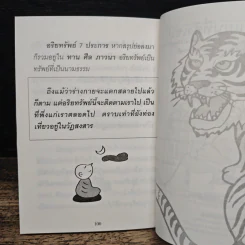 อริยทรัพย์ 7 ประการ หากสรุปย่อลงมา
ก็รวมอยู่ใน ทาน ศีล ภาวนา อริยทรัพย์เป็น
ทรัพย์ที่เป็นนามธรรม
ถึงแม้ว่าร่างกายจะแตกสลายไปแล้ว
ก็ตาม แต่อริยทรัพย์นี้จะติดตามเราไป เป็น
ที่พึ่งแก่เราตลอดไป ตราบเท่าที่ยังท่อง
เที่ยวอยู่ในวัฏสงสาร